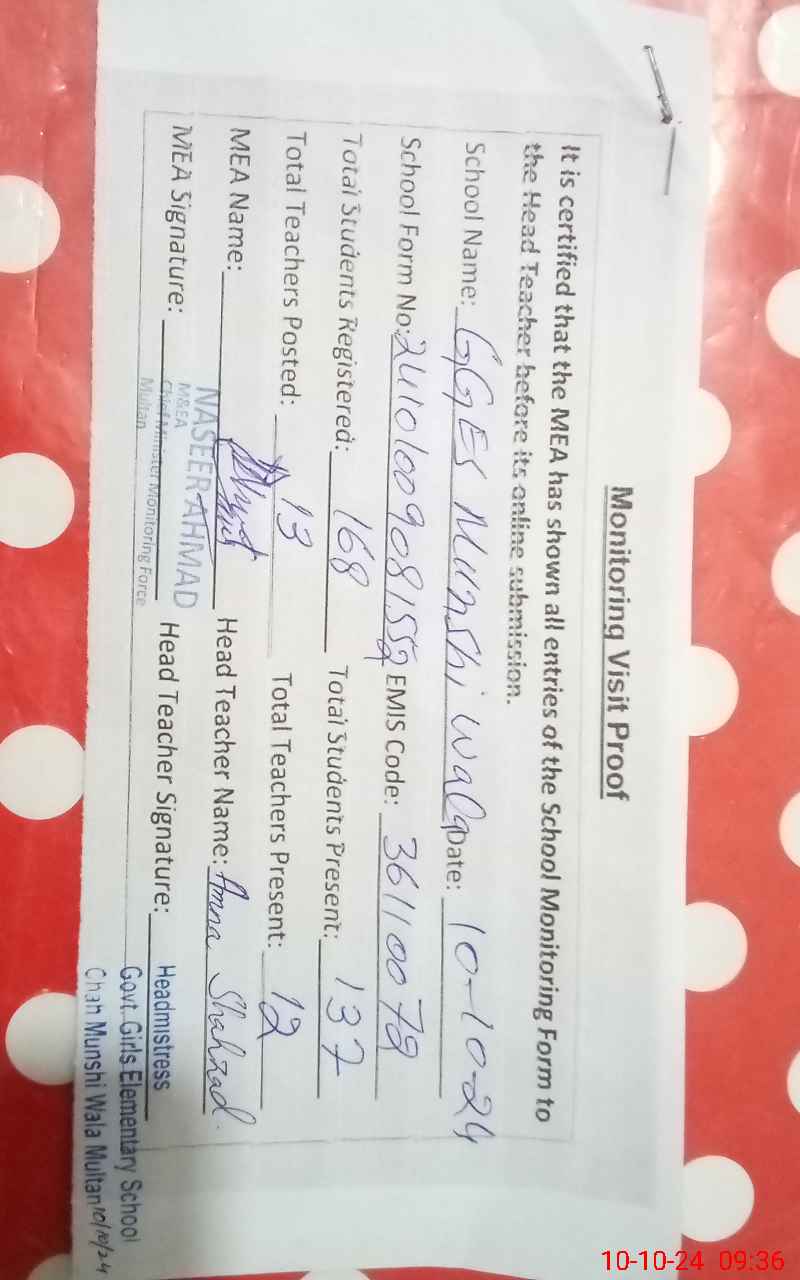 Monitoring Visit Proof
It is certified that the MEA has shown all entries of the School Monitoring Form to
the Head Teacher before its online submission.
School Name: GGES Munshi Wala Date: 10-10-24
School Form No: EMIS Code: 36110072
Total Students Registered: 168 Total Students Present: 137
Total Teachers Posted: 13 Total Teachers Present: 12
MEA Name: NASEER AHMAD Head Teacher Name: Amna Shahzad.
M&EA
MEA Signature: Chief Minister Monitoring Force Head Teacher Signature: Headmistress
Multan
Govt. Girls Elementary School
Chah Munshi Wala Multan 10/10/24
10-10-24 09:36